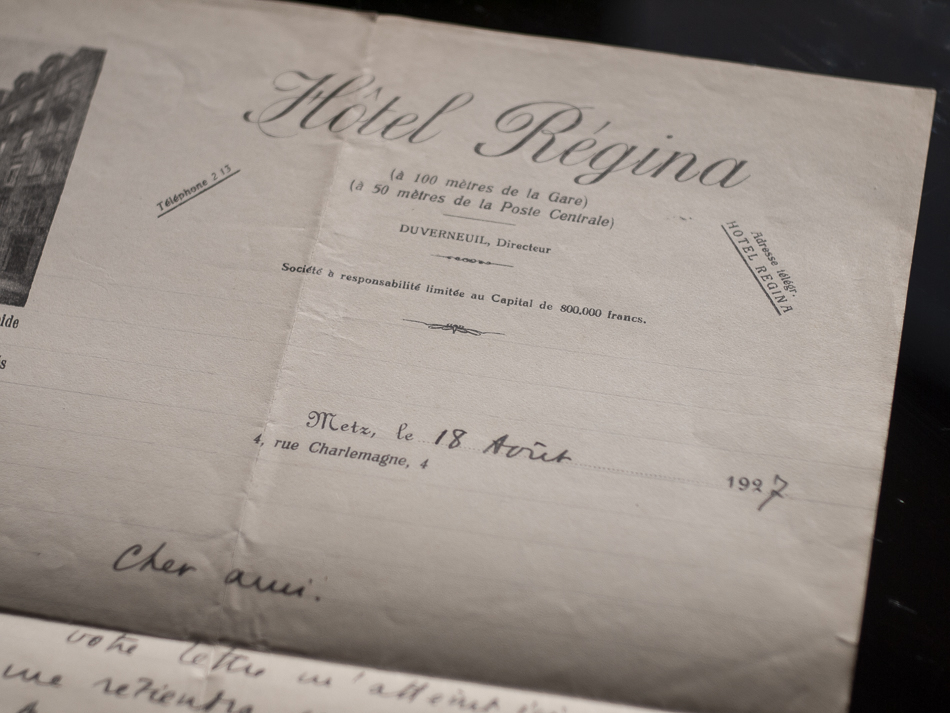 Hôtel Régina
(à 100 mètres de la Gare)
(à 50 mètres de la Poste Centrale)
Téléphone 2 13
DUVERNEUIL, Directeur
Adresse télégr.
HOTEL REGINA
Société à responsabilité limitée au Capital de 800.000 francs.
Metz, le 18 Août 1927
4, rue Charlemagne, 4
Cher ami.
votre lettre m'atteint ici
me retiendra